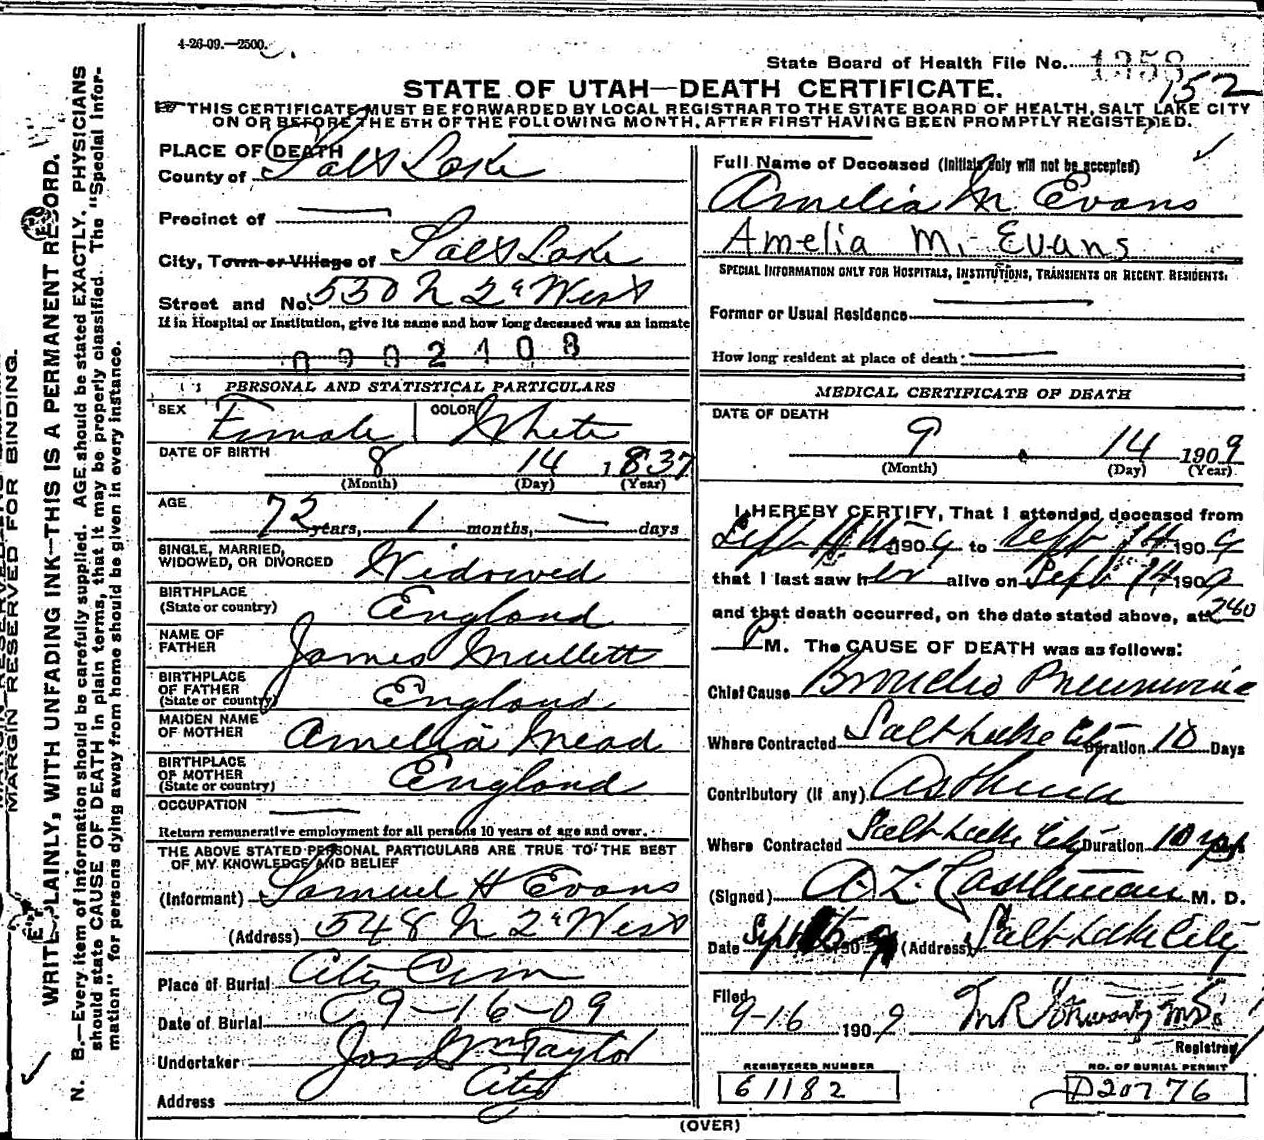 4-26-09.—2500.
State Board of Health File No. 1358
152
STATE OF UTAH—DEATH CERTIFICATE.
THIS CERTIFICATE MUST BE FORWARDED BY LOCAL REGISTRAR TO THE STATE BOARD OF HEALTH, SALT LAKE CITY
ON OR BEFORE THE 5TH OF THE FOLLOWING MONTH, AFTER FIRST HAVING BEEN PROMPTLY REGISTERED.
MARGIN RESERVED FOR BINDING.
WRITE PLAINLY, WITH UNFADING INK—THIS IS A PERMANENT RECORD.
N. B.—Every item of information should be carefully supplied. AGE should be stated EXACTLY. PHYSICIANS
should state CAUSE OF DEATH in plain terms, that it may be properly classified. The "Special Infor-
mation" for persons dying away from home should be given in every instance.
PLACE OF DEATH
County of Salt Lake
Precinct of —
City, Town or Village of Salt Lake
Street and No. 550 N 2d West
If in Hospital or Institution, give its name and how long deceased was an inmate
0902108
PERSONAL AND STATISTICAL PARTICULARS
SEX Female COLOR White
DATE OF BIRTH 8 14 1837
(Month) (Day) (Year)
AGE 72 years, 1 months, — days
SINGLE, MARRIED,
WIDOWED, OR DIVORCED Widowed
BIRTHPLACE
(State or country) England
NAME OF
FATHER James Mullett
BIRTHPLACE
OF FATHER
(State or country) England
MAIDEN NAME
OF MOTHER Amelia Mead
BIRTHPLACE
OF MOTHER
(State or country) England
OCCUPATION —
Return remunerative employment for all persons 10 years of age and over.
THE ABOVE STATED PERSONAL PARTICULARS ARE TRUE TO THE BEST
OF MY KNOWLEDGE AND BELIEF
(Informant) Samuel H Evans
(Address) 548 N 2d West
Place of Burial City Cem
Date of Burial 9-16-09
Undertaker Jos Wm Taylor
Address City
Full Name of Deceased (Initials only will not be accepted)
Amelia M Evans
Amelia M. Evans
SPECIAL INFORMATION ONLY FOR HOSPITALS, INSTITUTIONS, TRANSIENTS OR RECENT RESIDENTS.
Former or Usual Residence —
How long resident at place of death: —
MEDICAL CERTIFICATE OF DEATH
DATE OF DEATH
9 14 1909
(Month) (Day) (Year)
I HEREBY CERTIFY, That I attended deceased from
Sept 1909 to Sept 14 1909
that I last saw her alive on Sept 14 1909
and that death occurred, on the date stated above, at 240
P M. The CAUSE OF DEATH was as follows:
Chief Cause Broncho Pneumonia
Where Contracted Salt Lake City Duration 10 Days
Contributory (if any) Asthma
Where Contracted Salt Lake City Duration 10 yrs
(Signed) A. Z. M. D.
Date Sept 15 1909 (Address) Salt Lake City
Filed
9-16 1909 M.D.
Registrar
REGISTERED NUMBER
61182
NO. OF BURIAL PERMIT
D20776
(OVER)